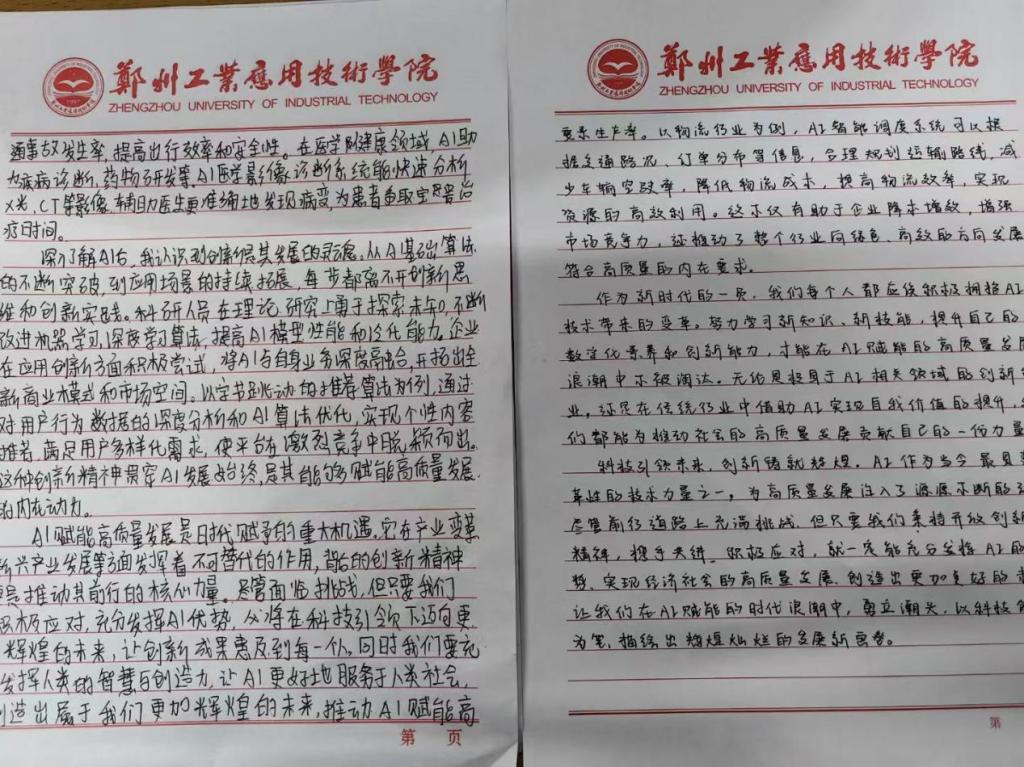 鄭州工業應用技術學院
ZHENGZHOU UNIVERSITY OF INDUSTRIAL TECHNOLOGY
通事故发生率,提高出行效率和安全性。在医学健康领域,AI助
力疾病诊断,药物研发等,AI医学影像诊断系统能快速分析
X光,CT等影像,辅助医生更准确地发现病变,为患者争取宝贵治
疗时间。
深入了解AI后,我认识到创新是其发展的灵魂。从AI基础算法
的不断突破,到应用场景的持续拓展,每步都离不开创新思
维和创新实践。科研人员在理论研究上勇于探索未知,不断
改进机器学习,深度学习算法,提高AI模型性能和泛化能力。企业
在应用创新方面积极尝试,将AI与自身业务深度融合,开拓出全
新商业模式和市场空间。以字节跳动的推荐算法为例,通过
对用户行为数据的深度分析和AI算法优化,实现个性内容
推荐,满足用户多样化需求,使平台在激烈竞争中脱颖而出。
这种创新精神贯穿AI发展始终,是其能够赋能高质量发展
的内在动力。
AI赋能高质量发展是时代赋予的重大机遇。它在产业变革
新兴产业发展等方面发挥着不可替代的作用,背后的创新精神
是推动其前行的核心力量。尽管面临挑战,但只要我们
积极应对,充分发挥AI优势,必将在科技引领下迈向更
辉煌的未来,让创新成果惠及到每一个人。同时我们要充
发挥人类的智慧与创造力,让AI更好地服务于人类社会,
创造出属于我们更加辉煌的未来,推动AI赋能高
第 页
鄭州工業應用技術學院
ZHENGZHOU UNIVERSITY OF INDUSTRIAL TECHNOLOGY
要素生产率。以物流行业为例,AI智能调度系统可以根
据交通路况、订单分布等信息,合理规划运输路线,减
少车辆空驶率,降低物流成本,提高物流效率,实现
资源的高效利用。这不仅有助于企业降本增效,增强
市场竞争力,还推动了整个行业向绿色、高效的方向发展
符合高质量的内在要求。
作为新时代的一员,我们每个人都应该积极拥抱AI
技术带来的变革。努力学习新知识、新技能,提升自己的
数字化素养和创新能力,才能在AI赋能的高质量发展
浪潮中不被淘汰。无论是投身于AI相关领域的创新
业,还是在传统行业中借助AI实现自我价值的提升,
们都能为推动社会的高质量发展贡献自己的一份力量
科技引领未来,创新铸就辉煌。AI作为当今最具
革性的技术力量之一,为高质量发展注入了源源不断的
尽管前行道路上充满挑战,但只要我们秉持开放创新
精神,携手共进、积极应对,就一定能充分发挥AI的
势、实现经济社会的高质量发展、创造出更加美好的
让我们在AI赋能的时代浪潮中,勇立潮头,以科技
为笔,描绘出辉煌灿烂的发展新画卷。
第